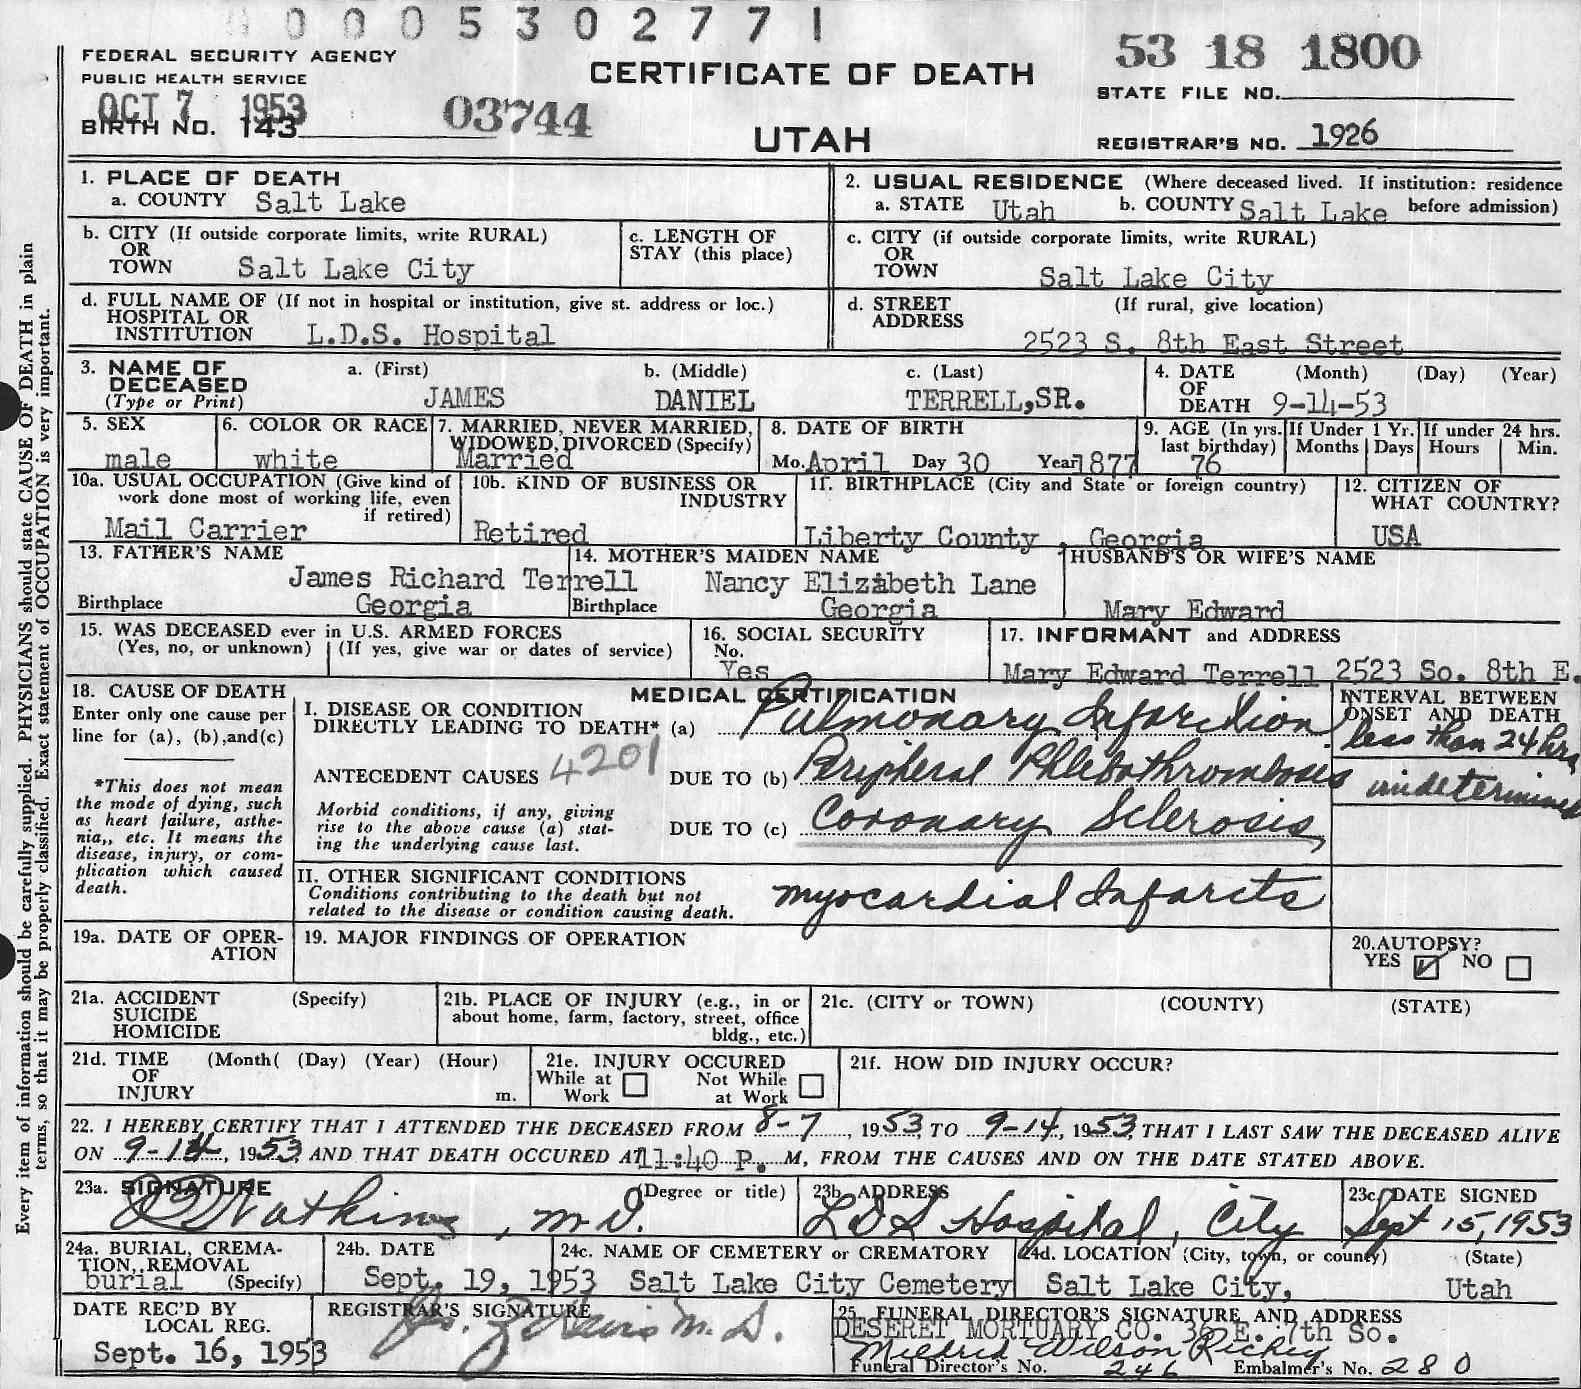 0005302771
FEDERAL SECURITY AGENCY
PUBLIC HEALTH SERVICE
OCT 7 1953
BIRTH NO. 143
03744
CERTIFICATE OF DEATH
UTAH
53 18 1800
STATE FILE NO.
REGISTRAR'S NO. 1926
1. PLACE OF DEATH
a. COUNTY Salt Lake
2. USUAL RESIDENCE (Where deceased lived. If institution: residence
a. STATE Utah b. COUNTY Salt Lake before admission)
b. CITY (If outside corporate limits, write RURAL)
OR
TOWN Salt Lake City
c. LENGTH OF
STAY (this place)
c. CITY (if outside corporate limits, write RURAL)
OR
TOWN Salt Lake City
d. FULL NAME OF (If not in hospital or institution, give st. address or loc.)
HOSPITAL OR
INSTITUTION L.D.S. Hospital
d. STREET (If rural, give location)
ADDRESS
2523 S. 8th East Street
3. NAME OF a. (First) b. (Middle) c. (Last)
DECEASED
(Type or Print) JAMES DANIEL TERRELL,SR.
4. DATE (Month) (Day) (Year)
OF
DEATH 9-14-53
5. SEX
male
6. COLOR OR RACE
white
7. MARRIED, NEVER MARRIED,
WIDOWED, DIVORCED (Specify)
Married
8. DATE OF BIRTH
Mo. April Day 30 Year 1877
9. AGE (In yrs.
last birthday)
76
If Under 1 Yr.
Months Days
If under 24 hrs.
Hours Min.
10a. USUAL OCCUPATION (Give kind of
work done most of working life, even
if retired)
Mail Carrier
10b. KIND OF BUSINESS OR
INDUSTRY
Retired
11. BIRTHPLACE (City and State or foreign country)
Liberty County , Georgia
12. CITIZEN OF
WHAT COUNTRY?
USA
13. FATHER'S NAME
James Richard Terrell
Birthplace Georgia
14. MOTHER'S MAIDEN NAME
Nancy Elizabeth Lane
Birthplace Georgia
HUSBAND'S OR WIFE'S NAME
Mary Edward
15. WAS DECEASED ever in U.S. ARMED FORCES
(Yes, no, or unknown) (If yes, give war or dates of service)
16. SOCIAL SECURITY
No.
Yes
17. INFORMANT and ADDRESS
Mary Edward Terrell 2523 So. 8th E.
18. CAUSE OF DEATH
Enter only one cause per
line for (a), (b),and(c)
*This does not mean
the mode of dying, such
as heart failure, asthe-
nia,, etc. It means the
disease, injury, or com-
plication which caused
death.
MEDICAL CERTIFICATION
I. DISEASE OR CONDITION
DIRECTLY LEADING TO DEATH* (a) Pulmonary Infarction
ANTECEDENT CAUSES 4201 DUE TO (b) Peripheral Phlebothrombosis
Morbid conditions, if any, giving
rise to the above cause (a) stat-
ing the underlying cause last.
DUE TO (c) Coronary Sclerosis
INTERVAL BETWEEN
ONSET AND DEATH
less than 24 hrs
indetermined
II. OTHER SIGNIFICANT CONDITIONS
Conditions contributing to the death but not
related to the disease or condition causing death.
myocardial Infarcts
19a. DATE OF OPER-
ATION
19. MAJOR FINDINGS OF OPERATION
20.AUTOPSY?
YES NO
21a. ACCIDENT (Specify)
SUICIDE
HOMICIDE
21b. PLACE OF INJURY (e.g., in or
about home, farm, factory, street, office
bldg., etc.)
21c. (CITY or TOWN) (COUNTY) (STATE)
21d. TIME (Month( (Day) (Year) (Hour)
OF
INJURY m.
21e. INJURY OCCURED
While at Not While
Work at Work
21f. HOW DID INJURY OCCUR?
22. I HEREBY CERTIFY THAT I ATTENDED THE DECEASED FROM 8-7, 1953, TO 9-14, 1953, THAT I LAST SAW THE DECEASED ALIVE
ON 9-14, 1953, AND THAT DEATH OCCURED AT 11:40 P. M, FROM THE CAUSES AND ON THE DATE STATED ABOVE.
23a. SIGNATURE (Degree or title)
Watkins, M.D.
23b. ADDRESS
LDS Hospital, City
23c. DATE SIGNED
Sept 15, 1953
24a. BURIAL, CREMA-
TION, REMOVAL
burial (Specify)
24b. DATE
Sept. 19, 1953
24c. NAME OF CEMETERY or CREMATORY
Salt Lake City Cemetery
24d. LOCATION (City, town, or county) (State)
Salt Lake City, Utah
DATE REC'D BY
LOCAL REG.
Sept. 16, 1953
REGISTRAR'S SIGNATURE
M.D.
25. FUNERAL DIRECTOR'S SIGNATURE AND ADDRESS
DESERET MORTUARY CO. 36 E. 7th So.
Mildred Wilson Richey
Funeral Director's No. 246 Embalmer's No. 280
Every item of information should be carefully supplied. PHYSICIANS should state CAUSE OF DEATH in plain
terms, so that it may be properly classified. Exact statement of OCCUPATION is very important.